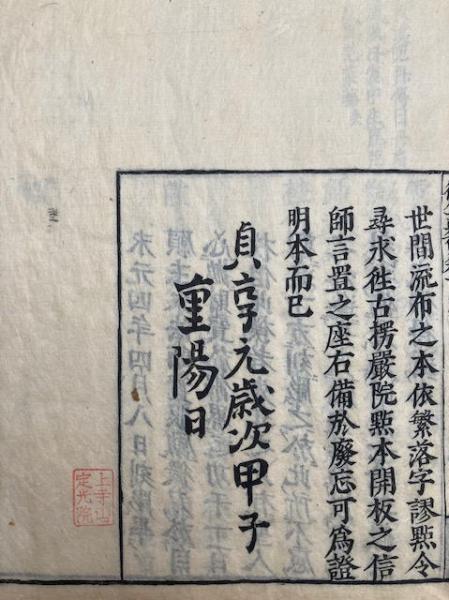 世間流布之本依繁落字謬點令
尋求徃古楞嚴院點本開板之信
師言置之座右備於廢忘可爲證
明本而已
貞享元歲次甲子
重陽日
上寺山
定光院